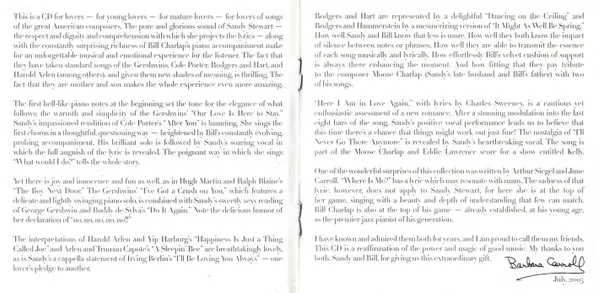 This is a CD for lovers — for young lovers — for mature lovers — for lovers of songs
of the great American composers. The pure and glorious sound of Sandy Stewart —
the respect and dignity and comprehension with which she projects the lyrics — along
with the constantly surprising richness of Bill Charlap's piano accompaniment make
for an unforgettable musical and emotional experience for the listener. The fact that
they have taken standard songs of the Gershwins, Cole Porter, Rodgers and Hart, and
Harold Arlen (among others), and given them new shades of meaning, is thrilling. The
fact that they are mother and son makes the whole experience even more amazing.
The first bell-like piano notes at the beginning set the tone for the elegance of what
follows; the warmth and simplicity of the Gershwins' "Our Love Is Here to Stay."
Sandy's impassioned rendition of Cole Porter's "After You" is haunting. She sings the
first chorus in a thoughtful, questioning way — heightened by Bill's constantly evolving,
probing accompaniment. His brilliant solo is followed by Sandy's soaring vocal in
which the full anguish of the lyric is revealed. The poignant way in which she sings
"What would I do?" tells the whole story.
Yet there is joy and innocence and fun as well, as in Hugh Martin and Ralph Blaine's
"The Boy Next Door." The Gershwins' "I've Got a Crush on You," which features a
delicate and lightly swinging piano solo, is combined with Sandy's sweetly sexy reading
of George Gershwin and Buddy de Sylva's "Do It Again." Note the delicious humor of
her declaration of "no, no, no, no, no!!"
The interpretations of Harold Arlen and Yip Harburg's "Happiness Is Just a Thing
Called Joe" and Arlen and Truman Capote's "A Sleepin' Bee" are breathtakingly lovely,
as is Sandy's a cappella statement of Irving Berlin's "I'll Be Loving You Always" — one
lover's pledge to another.
Rodgers and Hart are represented by a delightful "Dancing on the Ceiling" and
Rodgers and Hammerstein by a mesmerizing version of "It Might As Well Be Spring."
How well Sandy and Bill know that less is more. How well they both know the impact
of silence between notes or phrases. How well they are able to transmit the essence
of each song musically and lyrically. How effortlessly Bill's velvet cushion of support
is always there enhancing the moment. And how fitting that they pay tribute
to the composer Moose Charlap (Sandy's late husband and Bill's father) with two
of his songs.
"Here I Am in Love Again," with lyrics by Charles Sweeney, is a cautious yet
enthusiastic assessment of a new romance. After a stunning modulation into the last
eight bars of the song, Sandy's positive vocal performance leads us to believe that
this time there's a chance that things might work out just fine! The nostalgia of "I'll
Never Go There Anymore" is revealed by Sandy's heartbreaking vocal. The song is
part of the Moose Charlap and Eddie Lawrence score for a show entitled Kelly.
One of the wonderful surprises of this collection was written by Arthur Siegel and June
Carroll. "Where Is Me?" has a lyric which may resonate with many. The sadness of that
lyric, however, does not apply to Sandy Stewart, for here she is at the top of
her game, singing with a beauty and depth of understanding that few can match.
Bill Charlap is also at the top of his game — already established, at his young age,
as the premier jazz pianist of his generation.
I have known and admired them both for years, and I am proud to call them my friends.
This CD is a reaffirmation of the power and magic of good music. My thanks to you
both, Sandy and Bill, for giving us this extraordinary gift.
Barbara Carroll
July, 2005